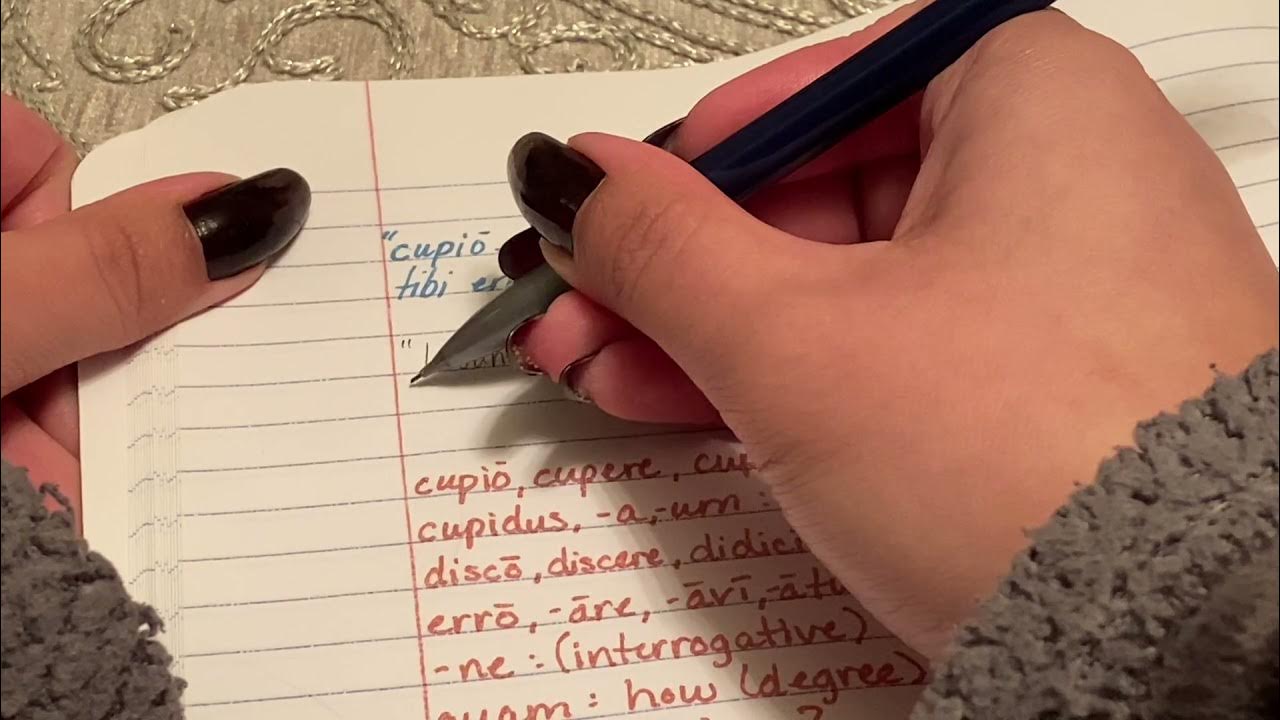 "cupiō
tibi
"
cupiō, cupere,
cupidus, -a, -um :
discō, discere, didici
errō, -āre, -āvī,
-ne : (interrogative)
quam : how (degree)